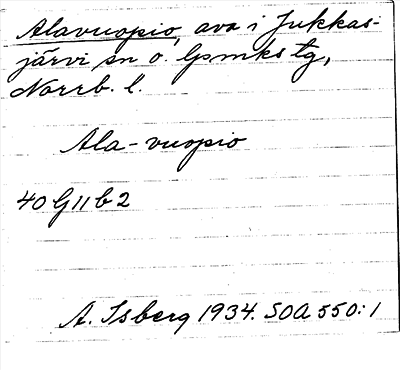 Alavuopio, ava i Jukkas-
järvi sn o. lpmks tg,
Norrb. l.
Ala-vuopio
40 G 11 b 2
A. Isberg 1934. SOA 550:1